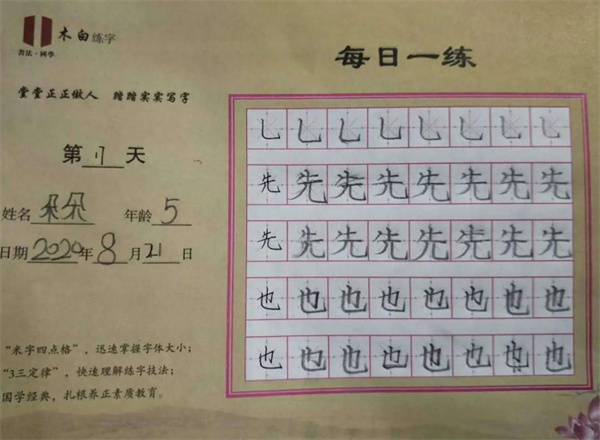 木白练字
書法·國學
每日一练
堂堂正正做人 踏踏实实写字
第 11 天
姓名 朵朵 年龄 5
日期 2020 年 8 月 21 日
乚 乚 乚 乚 乚 乚 乚 乚
先 先 先 先 先 先 先 先
先 先 先 先 先 先 先 先
也 也 也 也 也 也 也 也
也 也 也 也 也 也 也 也
“米字四点格”，迅速掌握字体大小；
“3三定律”，快速理解练字技法；
国学经典，扎根养正素质教育。